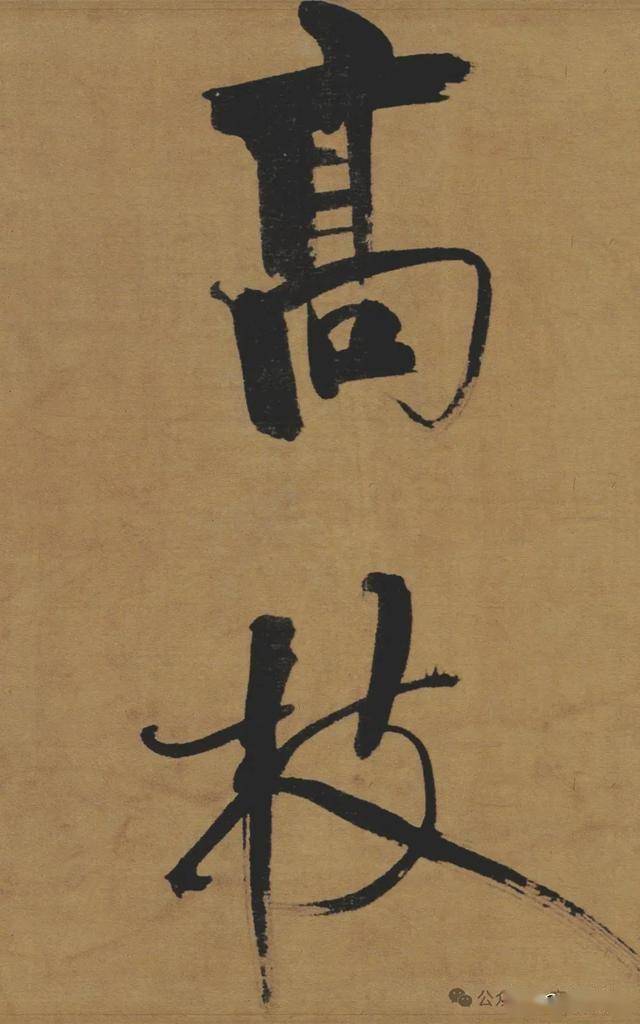 高枝
公众